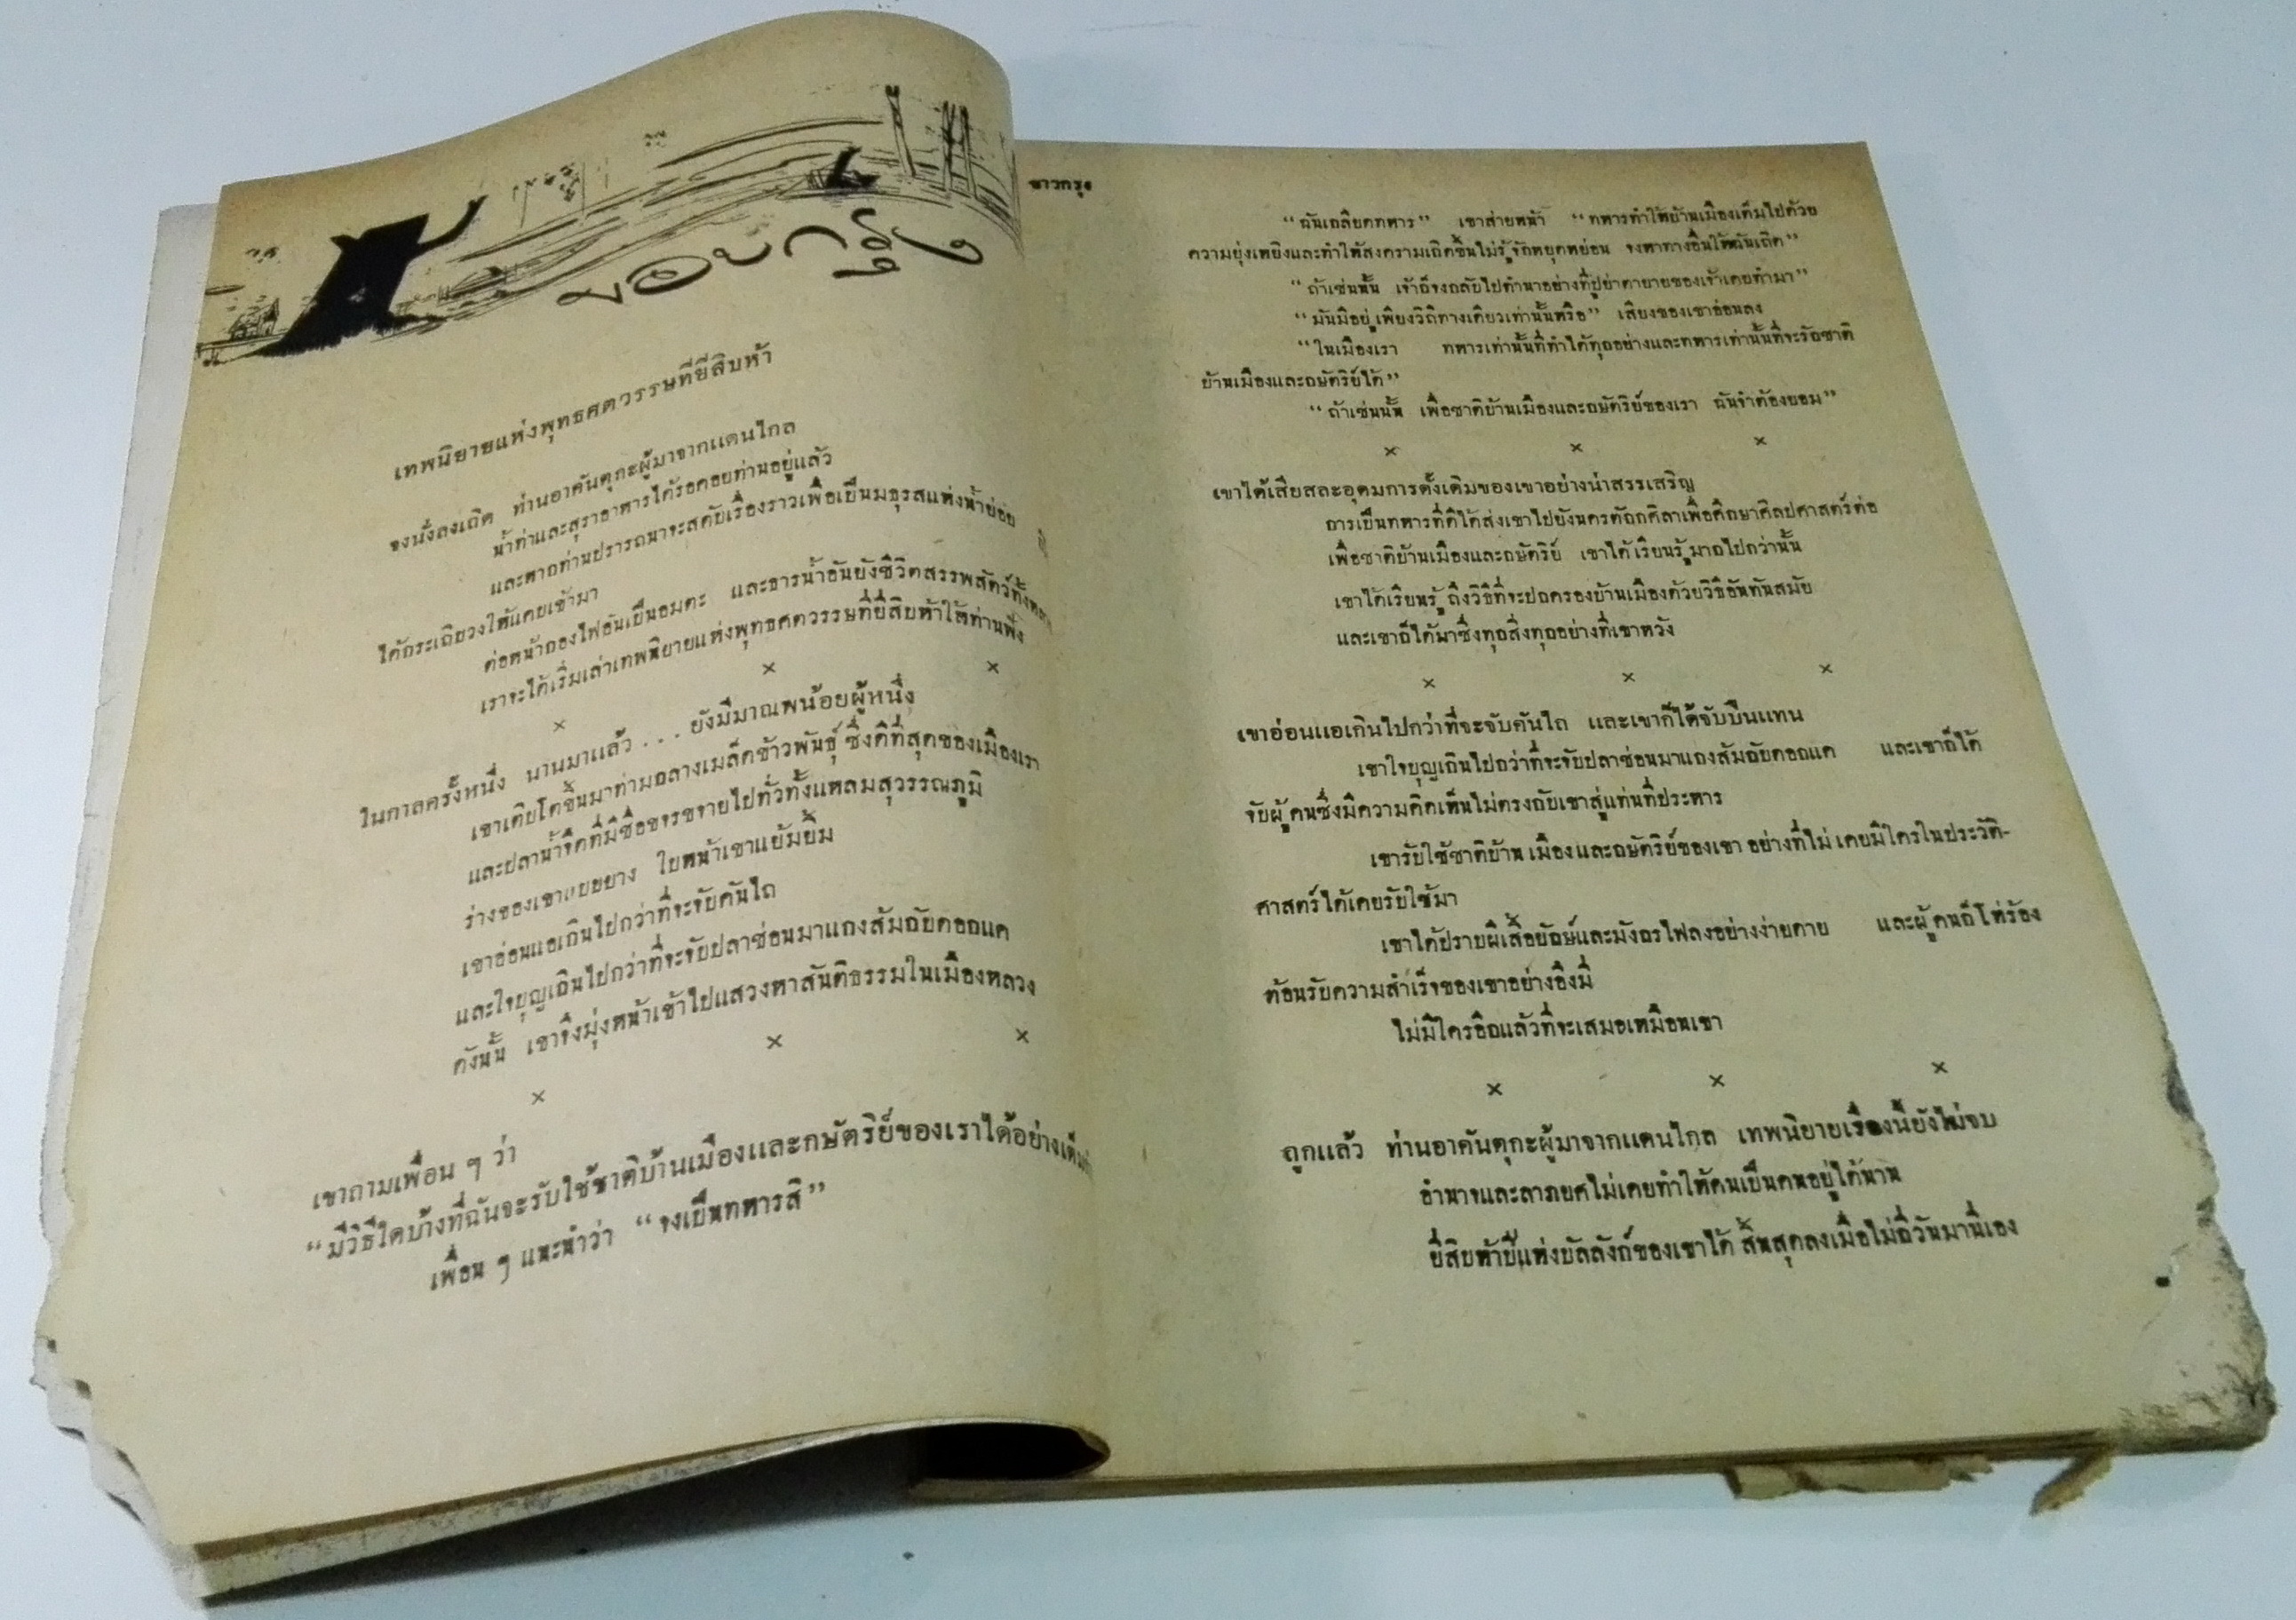 มอบกรุง
เทพนิยายแห่งพุทธศตวรรษที่ยี่สิบห้า
จงนั่งลงเถิด ท่านอาคันตุกะผู้มาจากแดนไกล
น้ำท่าและสุราอาหารได้รอคอยท่านอยู่แล้ว
และหากท่านปรารถนาจะสดับเรื่องราวเพื่อเป็นมธุรสแห่งน้ำย่อย
ได้กระเถิบวงให้แคบเข้ามา
ต่อหน้ากองไฟอันเป็นอมตะ และธารน้ำอันยังชีวิตสรรพสัตว์ทั้งหลาย
เราจะได้เริ่มเล่าเทพนิยายแห่งพุทธศตวรรษที่ยี่สิบห้าให้ท่านฟัง
× × ×
ในกาลครั้งหนึ่ง นานมาแล้ว . . . ยังมีมาณพน้อยผู้หนึ่ง
เขาเติบโตขึ้นมาท่ามกลางเมล็ดข้าวพันธุ์ ซึ่งดีที่สุดของเมืองเรา
และปลาน้ำจืดที่มีชื่อขจรขจายไปทั่วทั้งแหลมสุวรรณภูมิ
ร่างของเขาแบบบาง ใบหน้าเขาแย้มยิ้ม
เขาอ่อนแอเกินไปกว่าที่จะจับคันไถ
และใจบุญเกินไปกว่าที่จะจับปลาช่อนมาแกงส้มกับดอกแค
ดังนั้น เขาจึงมุ่งหน้าเข้าไปแสวงหาสันติธรรมในเมืองหลวง
× × ×
เขาถามเพื่อน ๆ ว่า
“มีวิธีใดบ้างที่ฉันจะรับใช้ชาติบ้านเมืองและกษัตริย์ของเราได้อย่างเต็มที่”
เพื่อน ๆ แนะนำว่า “จงเป็นทหารสิ”
ชาวกรุง
“ฉันเกลียดทหาร” เขาส่ายหน้า “ทหารทำให้บ้านเมืองเต็มไปด้วย
ความยุ่งเหยิงและทำให้สงครามเกิดขึ้นไม่รู้จักหยุดหย่อน จงหาทางอื่นให้ฉันเถิด”
“ถ้าเช่นนั้น เจ้าก็จงกลับไปทำนาอย่างที่ปู่ย่าตายายของเจ้าเคยทำมา”
“มันมีอยู่เพียงวิถีทางเดียวเท่านั้นหรือ” เสียงของเขาอ่อนลง
“ในเมืองเรา ทหารเท่านั้นที่ทำได้ทุกอย่างและทหารเท่านั้นที่จะรักชาติ
บ้านเมืองและกษัตริย์ได้”
“ถ้าเช่นนั้น เพื่อชาติบ้านเมืองและกษัตริย์ของเรา ฉันจำต้องยอม”
× × ×
เขาได้เสียสละอุดมการดั้งเดิมของเขาอย่างน่าสรรเสริญ
การเป็นทหารที่ดีได้ส่งเขาไปยังนครตักกศิลาเพื่อศึกษาศิลปศาสตร์ต่อ
เพื่อชาติบ้านเมืองและกษัตริย์ เขาได้เรียนรู้มากไปกว่านั้น
เขาได้เรียนรู้ถึงวิธีที่จะปกครองบ้านเมืองด้วยวิธีอันทันสมัย
และเขาก็ได้มาซึ่งทุกสิ่งทุกอย่างที่เขาหวัง
× × ×
เขาอ่อนแอเกินไปกว่าที่จะจับคันไถ และเขาก็ได้จับปืนแทน
เขาใจบุญเกินไปกว่าที่จะจับปลาช่อนมาแกงส้มกับดอกแค และเขาก็ได้
จับผู้คนซึ่งมีความคิดเห็นไม่ตรงกับเขาสู่แท่นที่ประหาร
เขารับใช้ชาติบ้านเมืองและกษัตริย์ของเขา อย่างที่ไม่เคยมีใครในประวัติ-
ศาสตร์ได้เคยรับใช้มา
เขาได้ปราบผีเสื้อยักษ์และมังกรไฟลงอย่างง่ายดาย และผู้คนก็โห่ร้อง
ต้อนรับความสำเร็จของเขาอย่างอึงมี่
ไม่มีใครอีกแล้วที่จะเสมอเหมือนเขา
× × ×
ถูกแล้ว ท่านอาคันตุกะผู้มาจากแดนไกล เทพนิยายเรื่องนี้ยังไม่จบ
อำนาจและลาภยศไม่เคยทำให้คนเป็นคนอยู่ได้นาน
ยี่สิบห้าปีแห่งบัลลังก์ของเขาได้สิ้นสุดลงเมื่อไม่กี่วันมานี่เอง